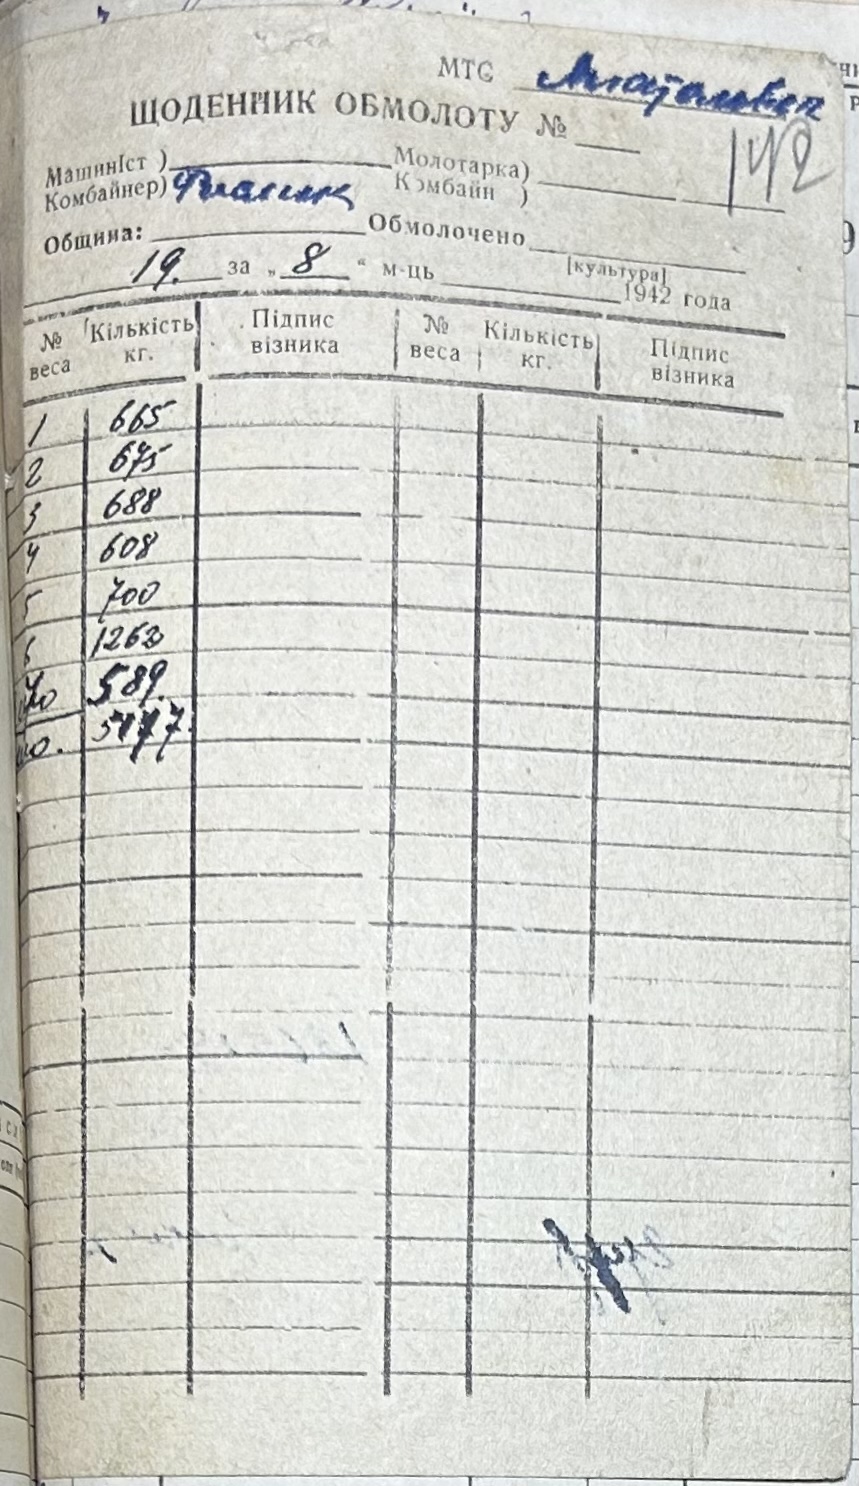 МТС
ЩОДЕННИК ОБМОЛОТУ №
142
Машиніст ) Молотарка)
Комбайнер) Комбайн )
Община: Обмолочено
[культура]
19. за „ 8 “ м-ць 1942 года
№ веса Кількість кг. Підпис візника № веса Кількість кг. Підпис візника
1 665
2 675
3 688
4 608
5 700
6 1262
589.
5177.